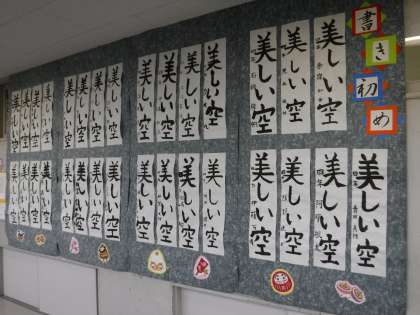 書き初め
美しい空
美しい空
美しい空
美しい空
美しい空
美しい空
美しい空
美しい空
美しい空
美しい空
美しい空
美しい空
美しい空
美しい空
美しい空
美しい空
美しい空
美しい空
美しい空
美しい空
美しい空
美しい空
美しい空
美しい空
美しい空
美しい空
美しい空
美しい空
美しい空
美しい空
美しい空